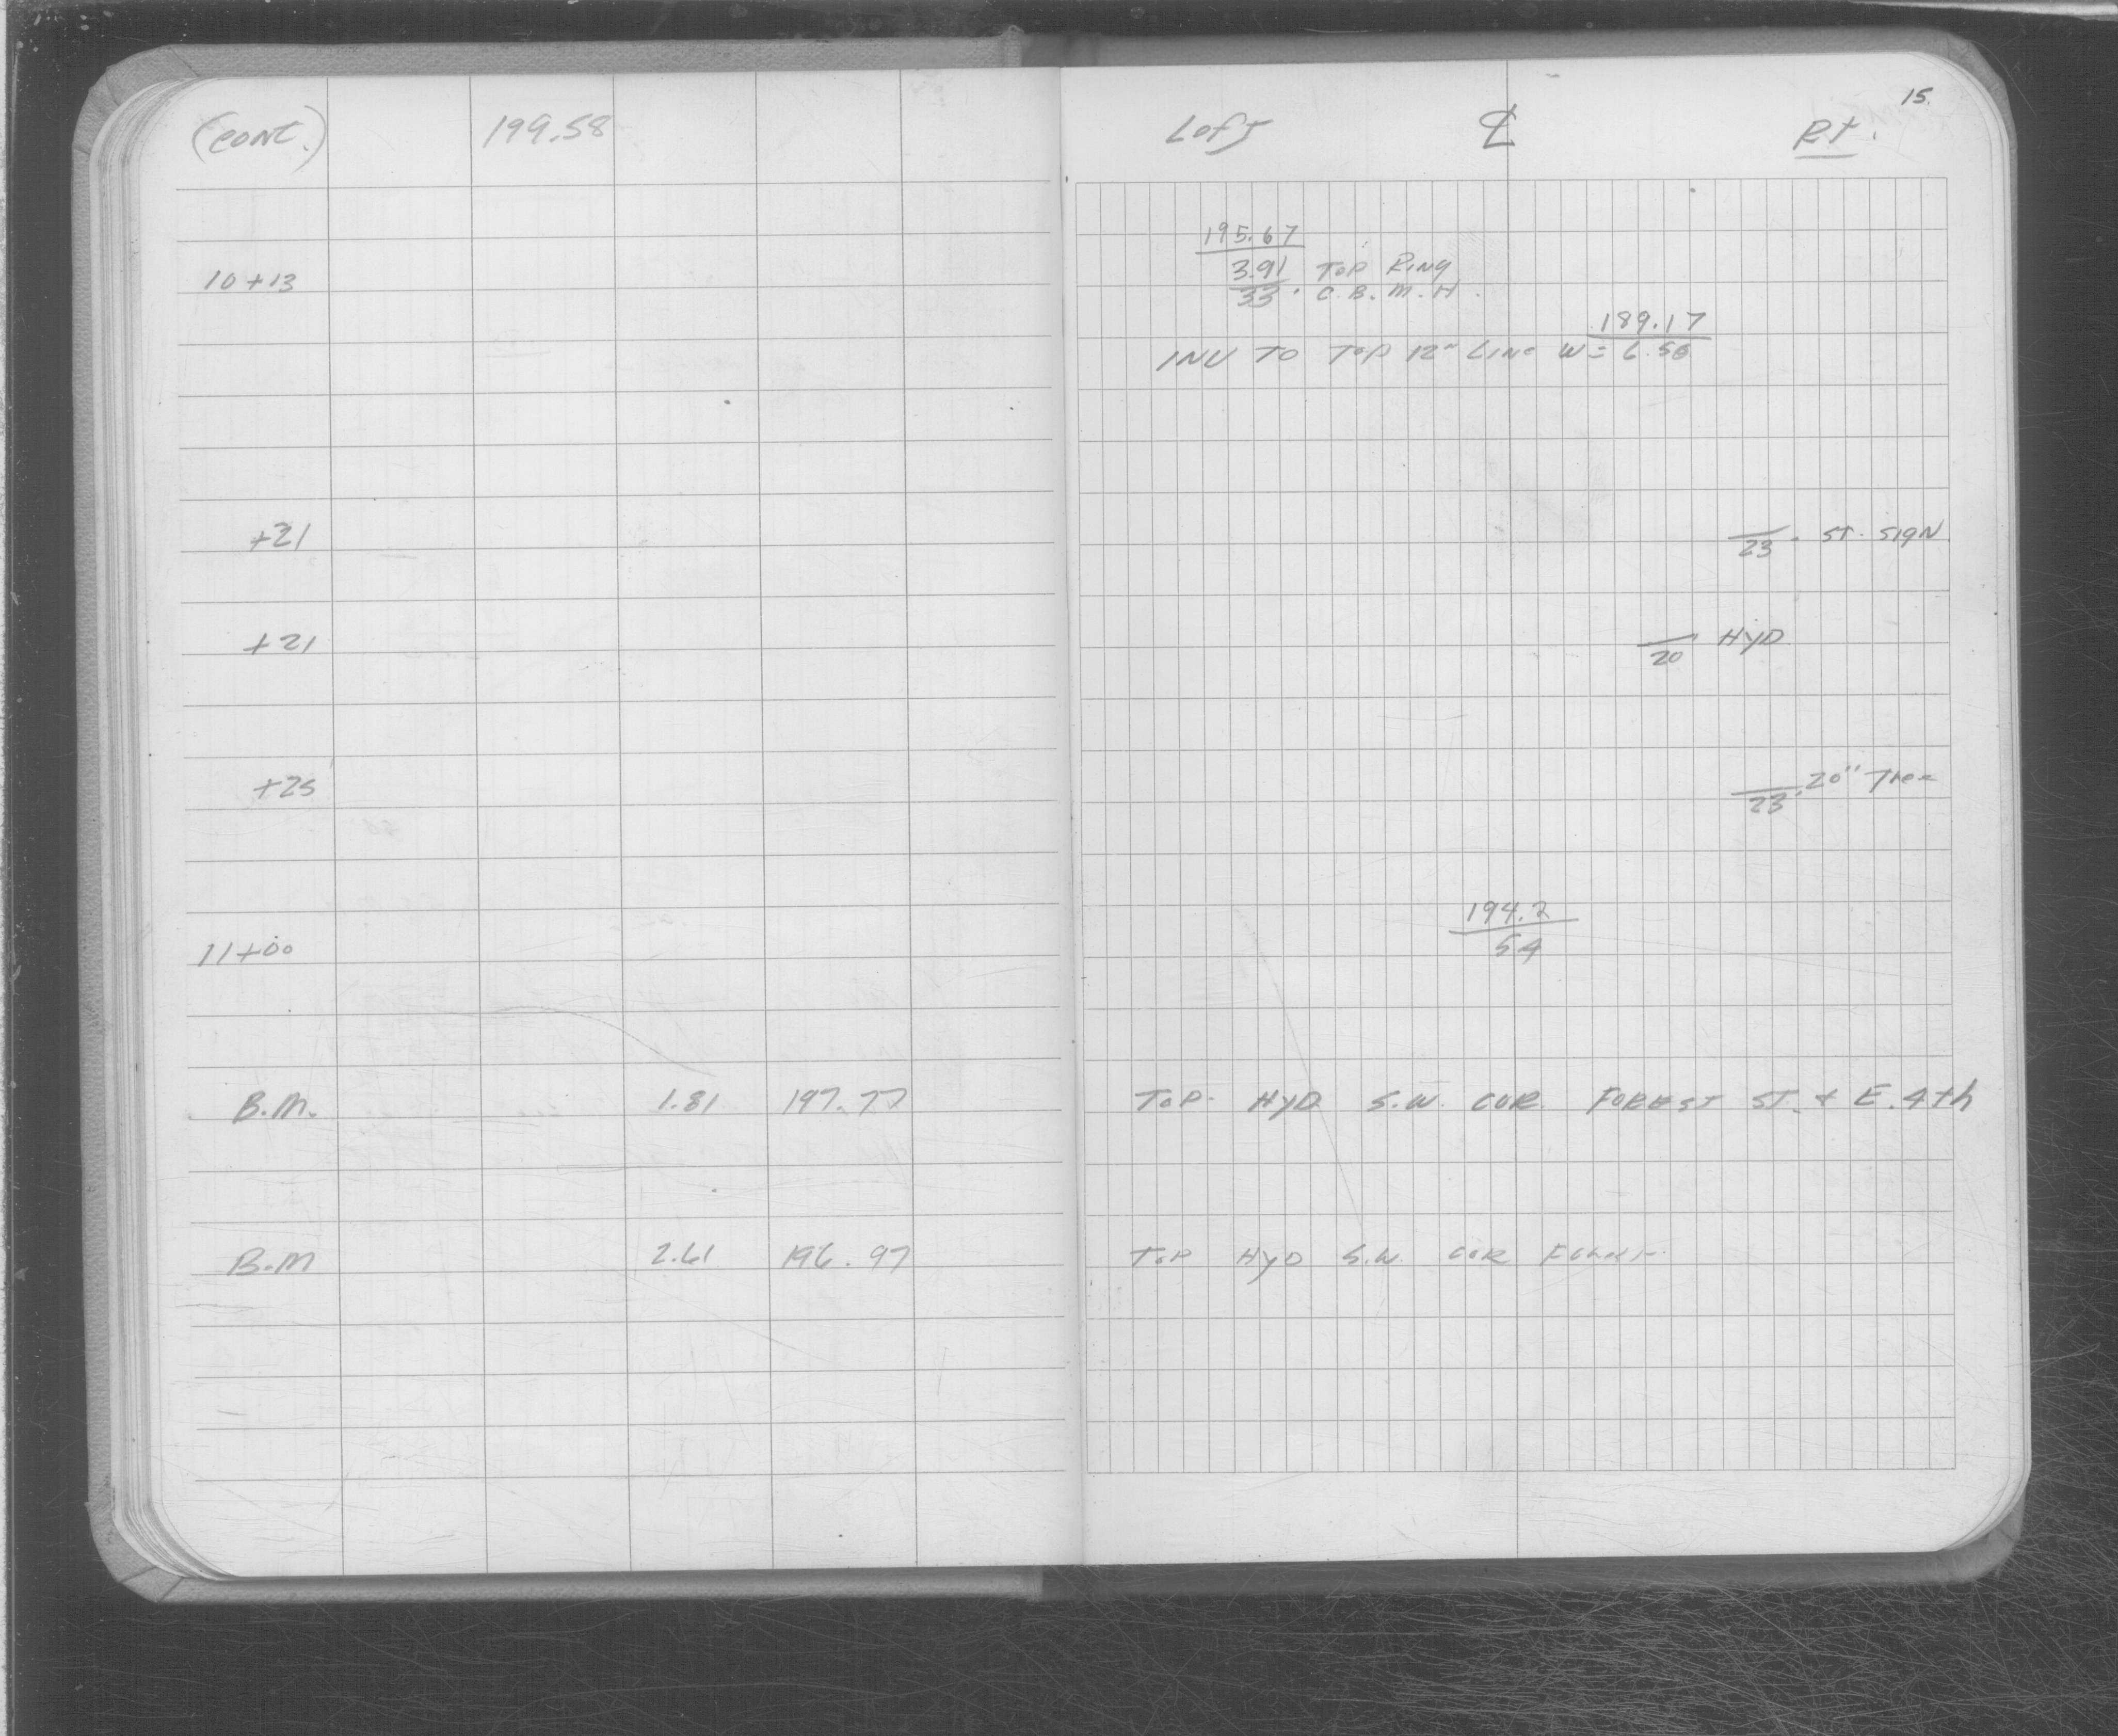 15.
(cont.) 199.58 Left ℄ Rt.
195.67
10+13 3.91 Top Ring
33 C.B.M.H.
189.17
INV TO TOP 12" Line W = 6.50
+21 23 ST. SIGN
+21 20 HYD
+25 23 20" Tree
194.2
11+00 54
B.M. 1.81 197.77 TOP HYD S.W. COR. FOREST ST. & E. 4th
B.M 2.61 196.97 TOP HYD S.W. COR